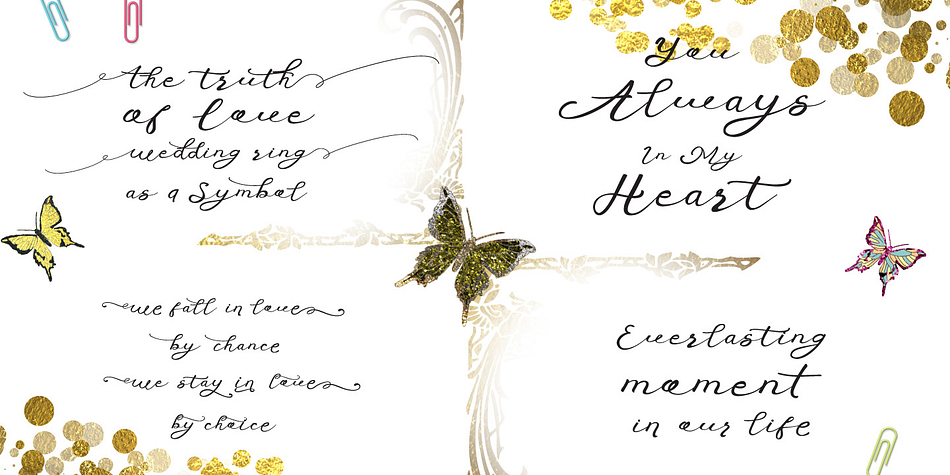 the truth
of love
wedding ring
as a Symbol
You
Always
In My
Heart
we fall in love
by chance
we stay in love
by choice
Everlasting
moment
in our life